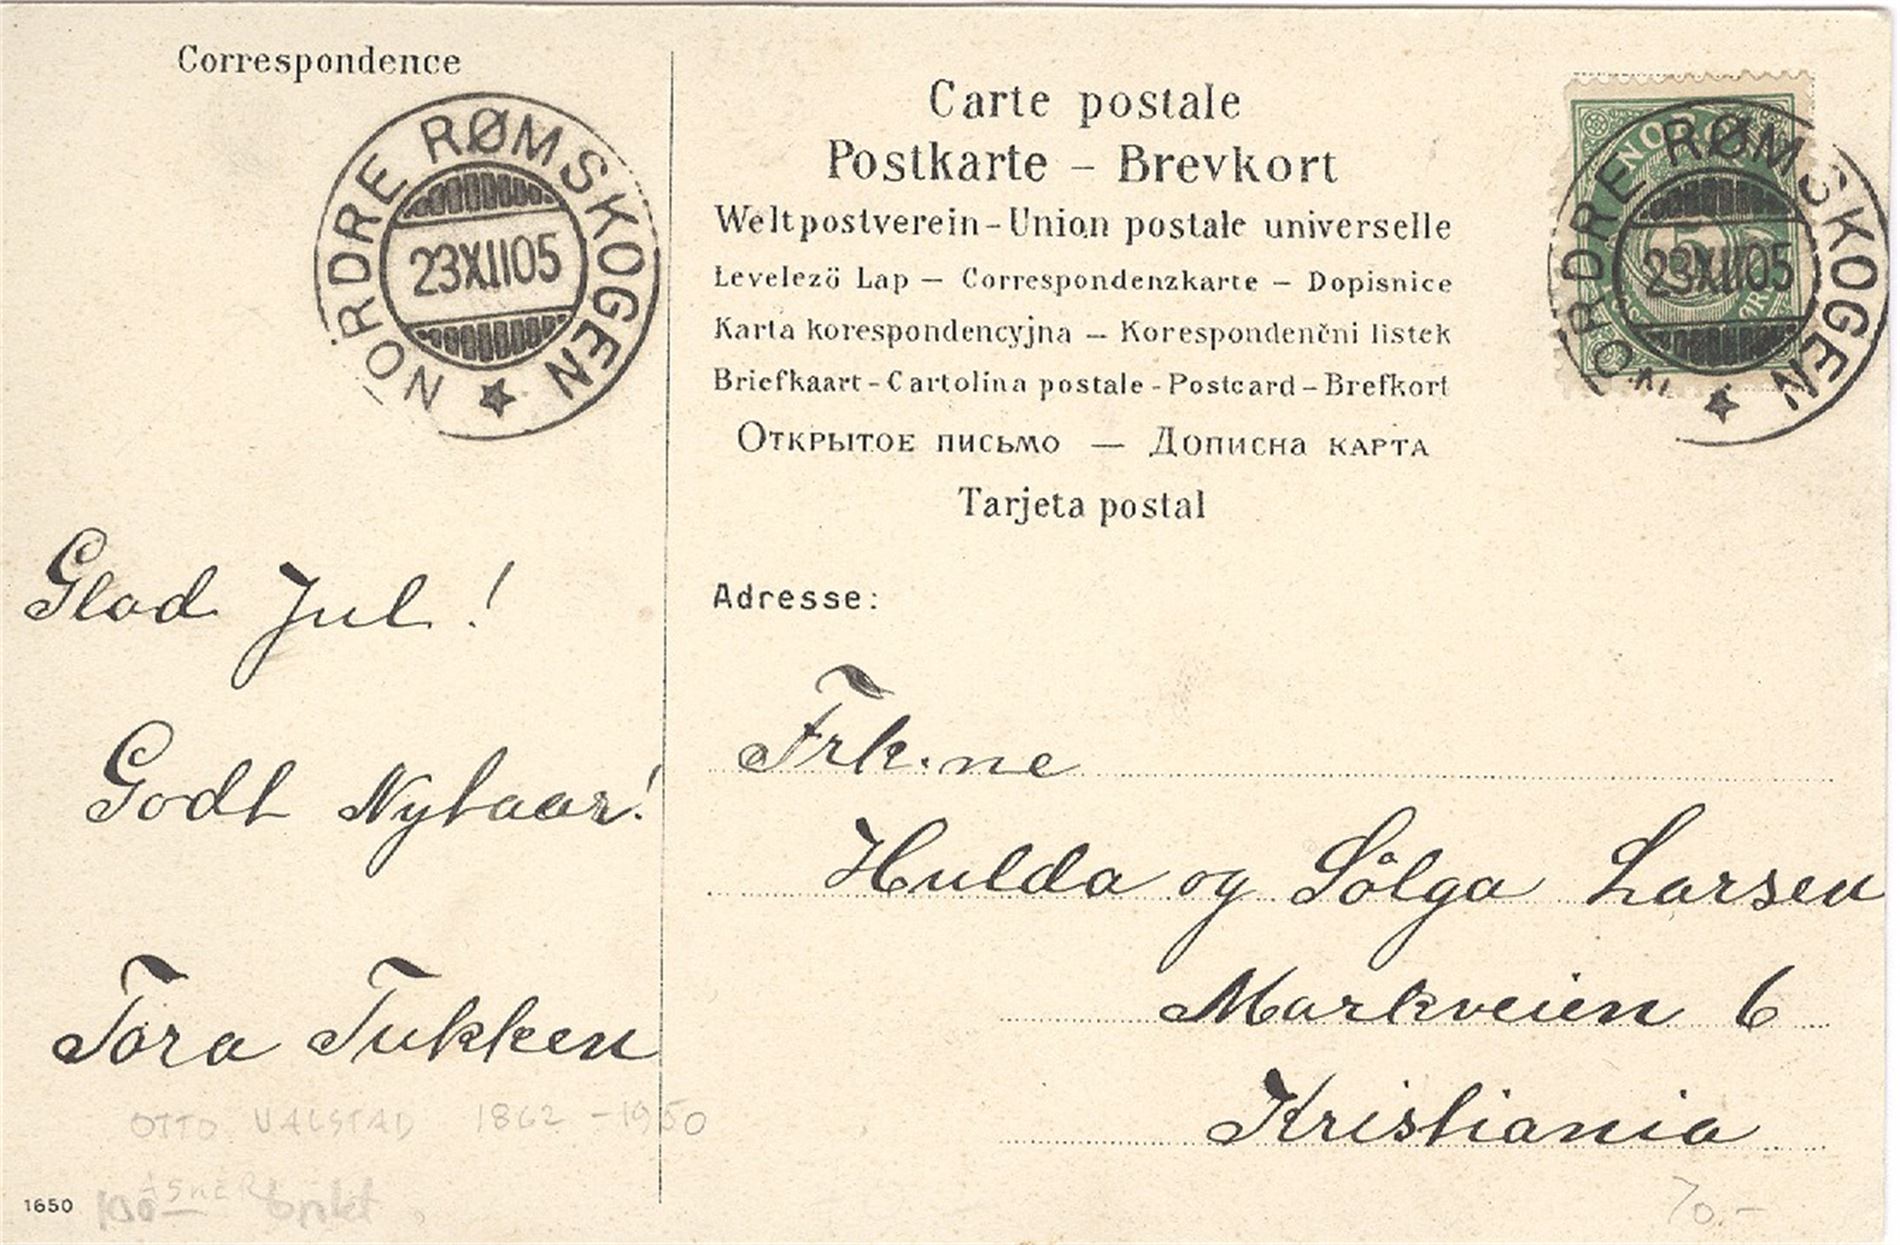 Correspondence
NORDRE RØMSKOGEN
23XII05
Glad Jul!
Godt Nytaar!
Tora Tukken
OTTO VALSTAD 1862-1950
ASKER
1650
Carte postale
Postkarte – Brevkort
Weltpostverein – Union postale universelle
Levelezö Lap — Correspondenzkarte — Dopisnice
Karta korespondencyjna — Korespondenčni listek
Briefkaart – Cartolina postale - Postcard – Brefkort
Открытое письмо — Дописна карта
Tarjeta postal
NORDRE RØMSKOGEN
23XII05
Adresse:
Frk.ne
Hulda og Sölga Larsen
Markveien 6
Kristiania
70.-